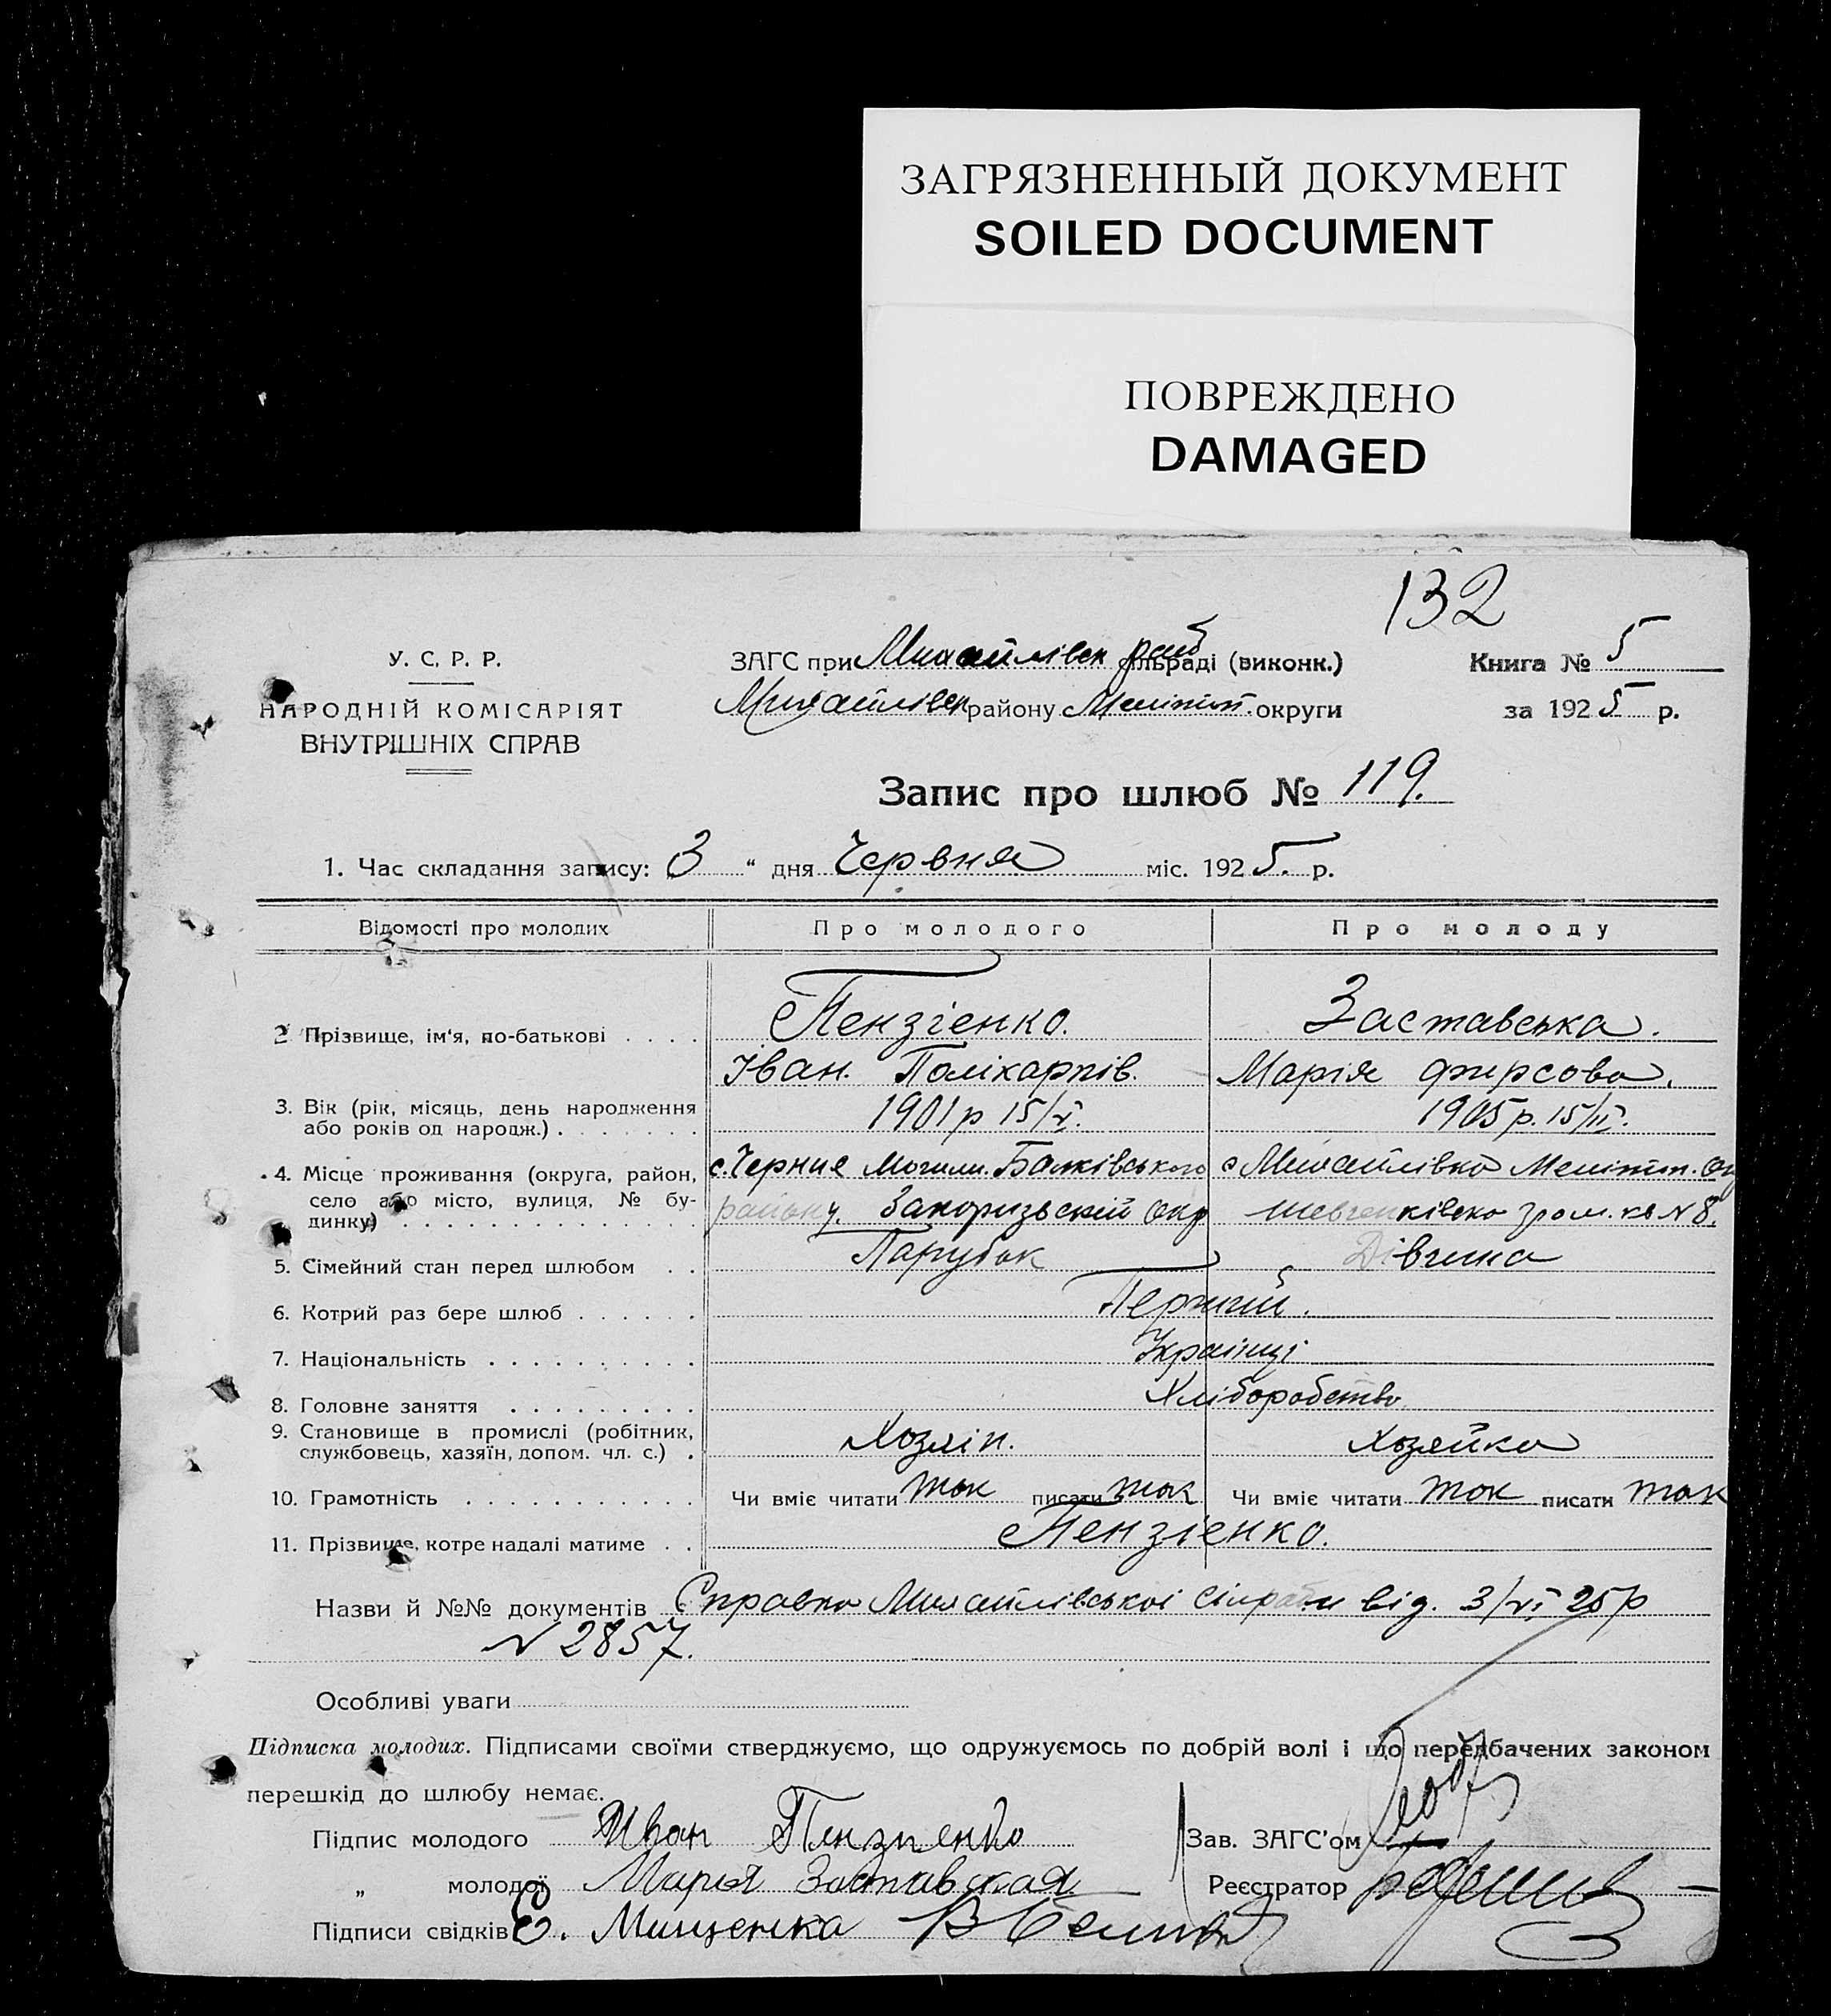 ЗАГРЯЗНЕННЫЙ ДОКУМЕНТ
SOILED DOCUMENT
ПОВРЕЖДЕНО
DAMAGED
132
У. С. Р. Р.
НАРОДНІЙ КОМІСАРІЯТ
ВНУТРІШНІХ СПРАВ
ЗАГС при Михайлівск сільраді (виконк.)
Михайлівск району Мелітоп. округи
Книга № 5
за 1925 р.
Запис про шлюб № 119.
1. Час складання запису: 3 " дня Червня міс. 1925. р.
Відомості про молодих
Про молодого
Про молоду
2 Прізвище, ім'я, по-батькові . . . .
Пензіенко.
Іван. Полікарпів.
Заставська.
Марія Фирсова.
3. Вік (рік, місяць, день народження
або років од народж.) . . . . . . .
1901 р 15/V.
1905 р. 15/II.
4. Місце проживання (округа, район,
село або місто, вулиця, № бу-
динку) . . . . . . . . . . . . . .
с. Черние Могили. Балківського
району. Запоризьский Окр
с Михайлівка Мелітоп. Ок
Шевченківско гром. кв N 8.
5. Сімейний стан перед шлюбом . .
Парубок
Дівчина
6. Котрий раз бере шлюб . . . . . .
Перший.
7. Національність . . . . . . . . . .
Українці
8. Головне заняття . . . . . . . . .
Хліборобство.
9. Становище в промислі (робітник,
службовець, хазяїн, допом. чл. с.) .
Хозяін.
Хозяйка
10. Грамотність . . . . . . . . . . .
Чи вміє читати так писати так
Чи вміє читати так писати так
11. Прізвище, котре надалі матиме . .
Пензіенко.
Назви й №№ документів Справка Михайлівськоі Сільради від. 3/VI 25 р
N 2857.
Особливі уваги
Підписка молодих. Підписами своїми стверджуємо, що одружуємось по добрій волі і що передбачених законом
перешкід до шлюбу немає.
Підпис молодого Иван Пензиенко
" молодої Мария Заставская
Підписи свідків Е. Мищенка
Зав. ЗАГС'ом
Реєстратор